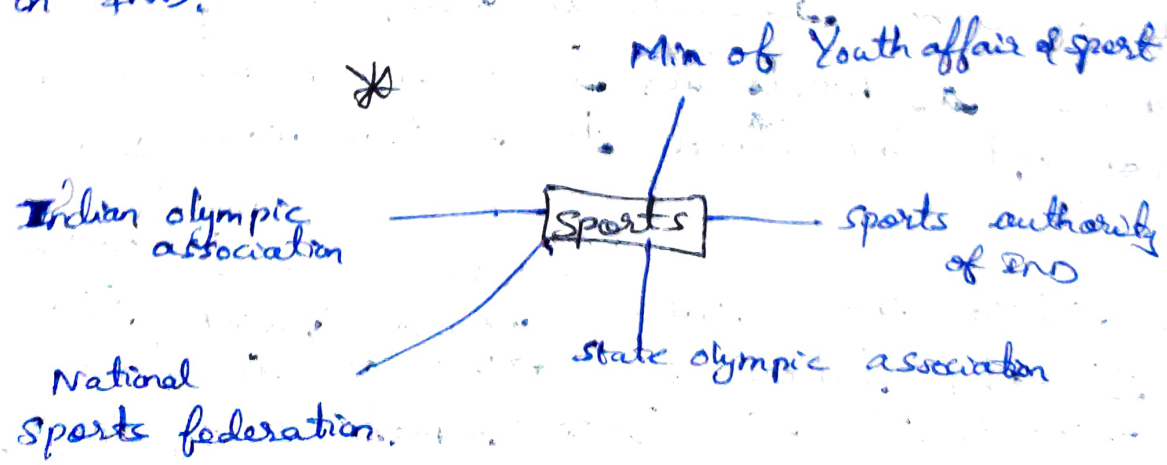 Min of Youth affair & sport
Indian olympic
association
Sports
sports authority
of IND
State olympic association
National
sports federation.